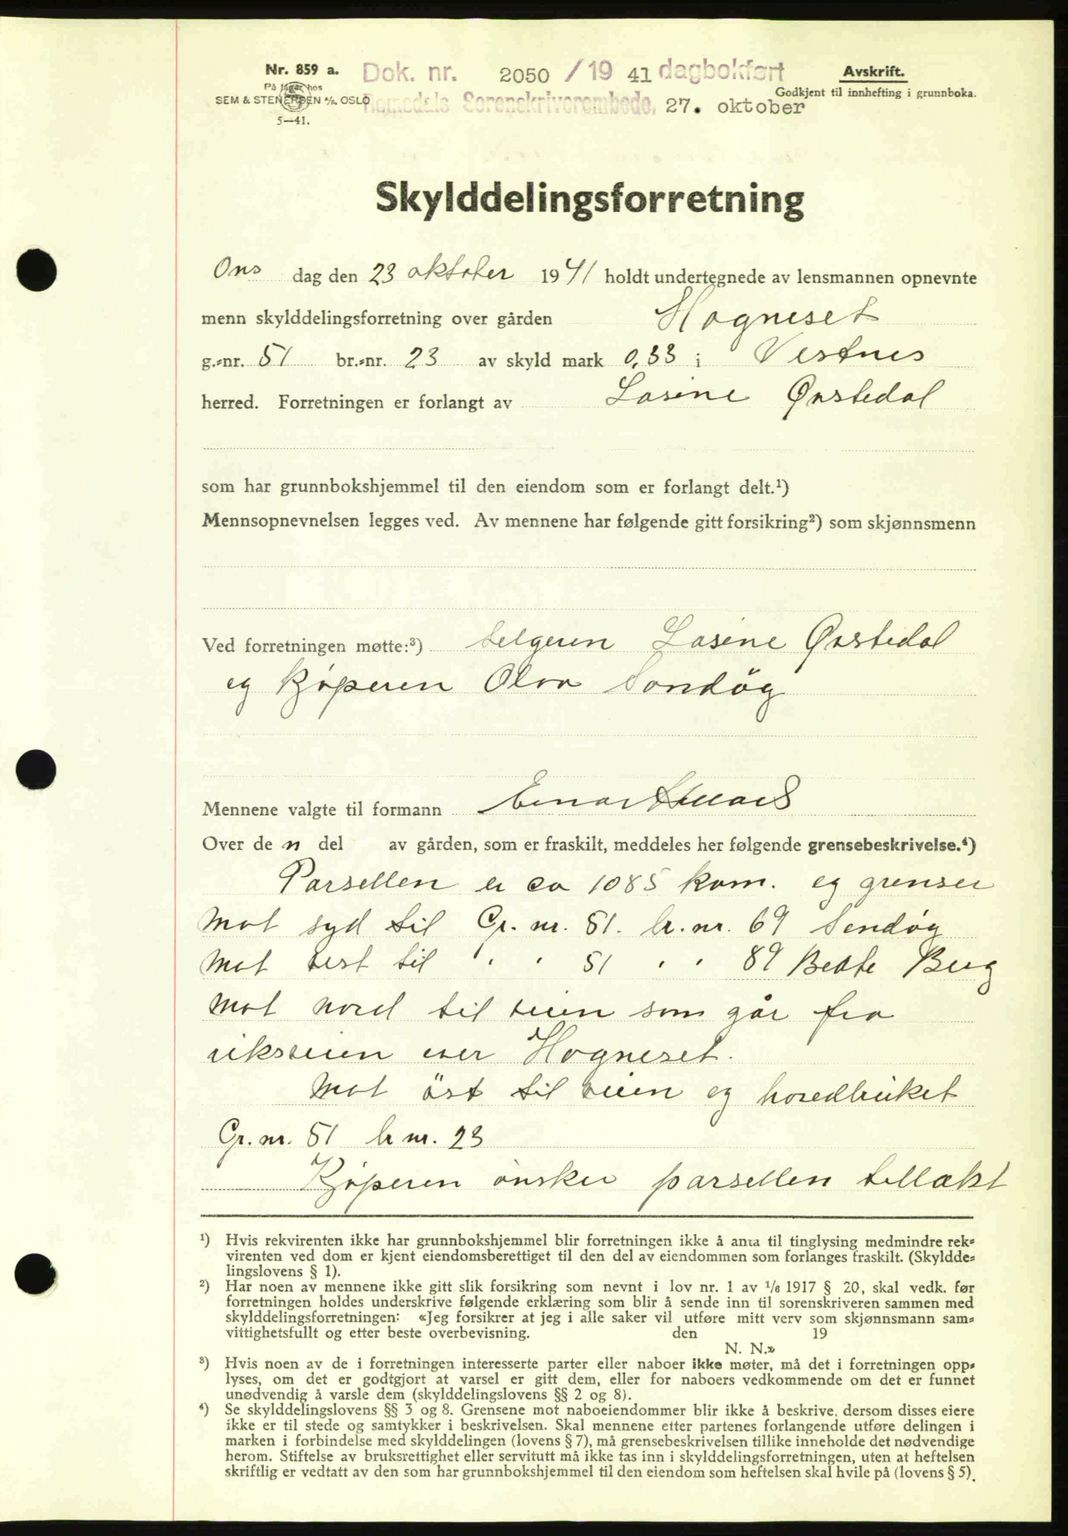 Nr. 859 a.
På lager hos
SEM & STENERSEN A/S, OSLO
5—41.
Dok. nr. 2050 /19 41 dagbokført
Romsdals Sorenskriverembede, 27. oktober
Avskrift.
Godkjent til innhefting i grunnboka.
Skylddelingsforretning
Ons dag den 23 oktober 1941 holdt undertegnede av lensmannen opnevnte
menn skylddelingsforretning over gården Hogneset
g.-nr. 51 br.-nr. 23 av skyld mark 0,33 i Vestnes
herred. Forretningen er forlangt av Lasine Ørstedal
som har grunnbokshjemmel til den eiendom som er forlangt delt.¹)
Mennsopnevnelsen legges ved. Av mennene har følgende gitt forsikring²) som skjønnsmenn
Ved forretningen møtte:³) selgeren Lasine Ørstedal
og kjøperen Olva Sandøg
Mennene valgte til formann Einar
Over de n del av gården, som er fraskilt, meddeles her følgende grensebeskrivelse.⁴)
Parsellen er ca 1085 kvm. og grenser
mot syd til Gr. nr. 51. br. nr. 69 Sendøg
mot vest til " " 51 " " 89 Berg
mot nord til veien som går fra
riksveien over Hogneset.
Mot öst til veien og hovedbruket
Gr. nr. 51 br nr. 23
Kjøperen ønsker parsellen tillækt
¹) Hvis rekvirenten ikke har grunnbokshjemmel blir forretningen ikke å anta til tinglysing medmindre rek-
virenten ved dom er kjent eiendomsberettiget til den del av eiendommen som forlanges fraskilt. (Skyldde-
lingslovens § 1).
²) Har noen av mennene ikke gitt slik forsikring som nevnt i lov nr. 1 av 1/6 1917 § 20, skal vedk. før
forretningen holdes underskrive følgende erklæring som blir å sende inn til sorenskriveren sammen med
skylddelingsforretningen: «Jeg forsikrer at jeg i alle saker vil utføre mitt verv som skjønnsmann sam-
vittighetsfullt og etter beste overbevisning. den 19
N. N.»
³) Hvis noen av de i forretningen interesserte parter eller naboer ikke møter, må det i forretningen opp-
lyses, om det er godtgjort at varsel er gitt dem, eller for naboers vedkommende om det er funnet
unødvendig å varsle dem (skylddelingslovens §§ 2 og 8).
⁴) Se skylddelingslovens §§ 3 og 8. Grensene mot naboeiendommer blir ikke å beskrive, dersom disses eiere
ikke er til stede og samtykker i beskrivelsen. Skal mennene etter partenes forlangende utføre delingen i
marken i forbindelse med skylddelingen (lovens § 7), må grensebeskrivelsen tillike inneholde det nødvendige
herom. Stiftelse av bruksrettighet eller servitutt må ikke tas inn i skylddelingsforretningen, uten at heftelsen
skriftlig er vedtatt av den som har grunnbokshjemmel til den eiendom som heftelsen skal hvile på (lovens § 5).